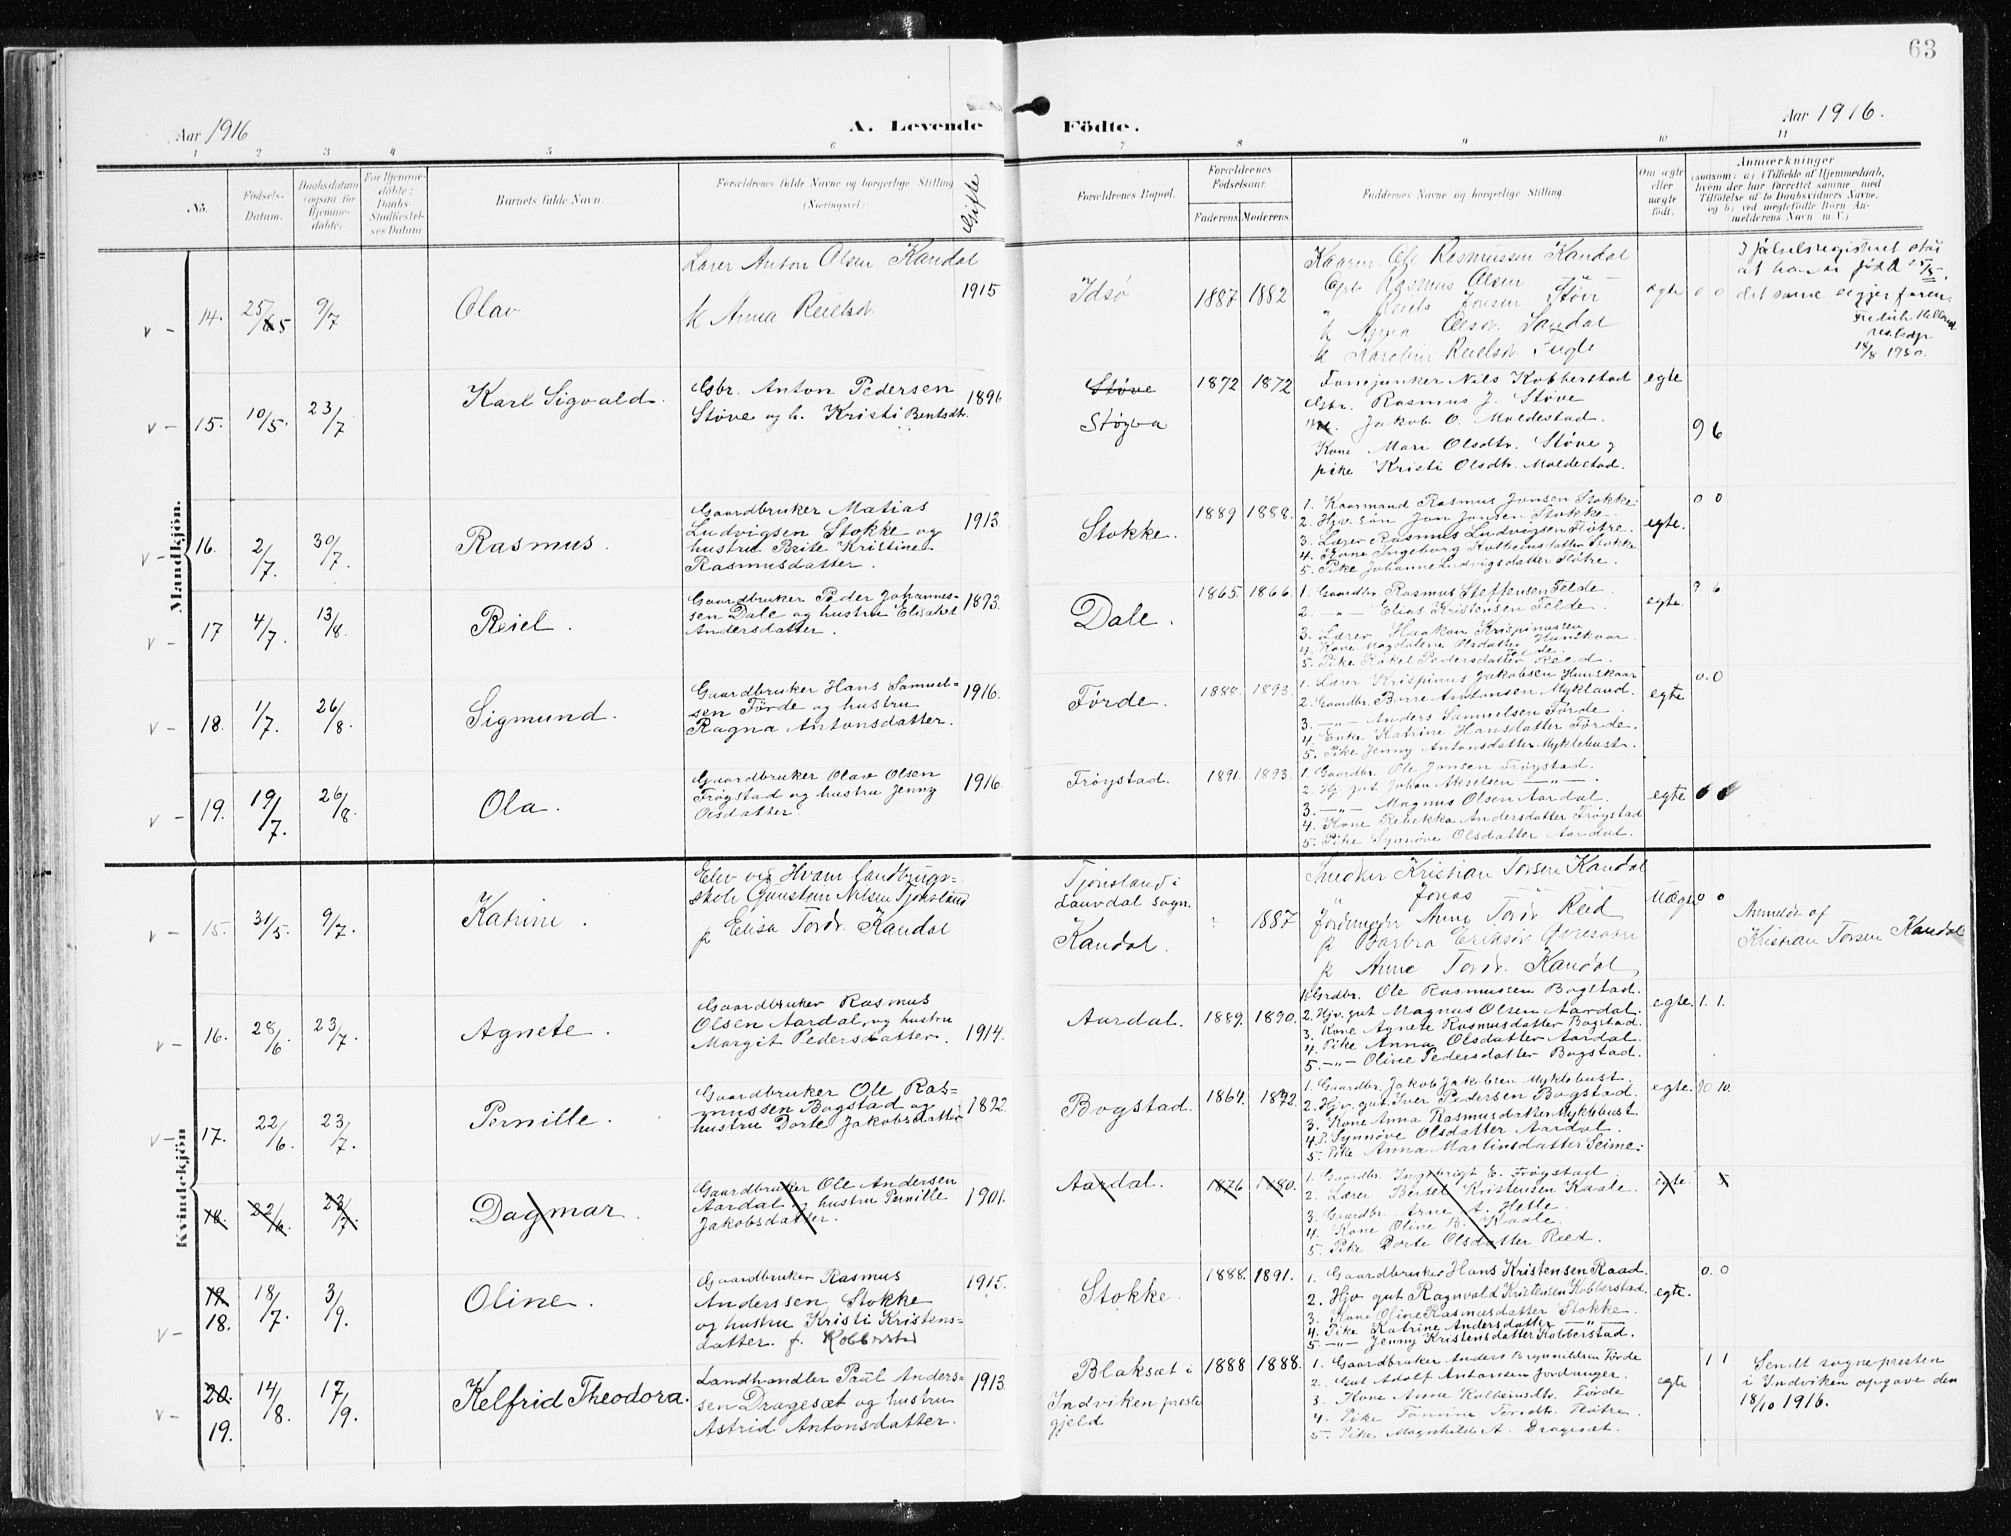 63
Aar 1916
A. Levende Födte.
Aar 1916.
1 2 3 4 5 6 7 8 9 10 11
No.
Födsels-
Datum.
Daabsdatum
(ogsaa for
Hjemme-
døbte.)
For Hjemme-
døbte:
Daabs-
Stadfæstel-
ses Datum
Barnets fulde Navn.
Forældrenes fulde Navne og borgerlige Stilling
(Næringsvei.)
Gifte
Forældrenes Bopæl.
Forældrenes
Fødselsaar.
Faderens Moderens
Faddernes Navne og borgerlig Stilling.
Om ægte
eller
uægte
født.
Anmærkninger
(saasom: a) i Tilfælde af Hjemmedaab,
hvem der har forrettet samme med
Tilføielse af to Daabsvidners Navne,
og b) ved uægtefødte Børn An-
melderens Navn m. V.)
Mandkjön.
14.
25/5
9/7
Olav
Lærer Anton Olsen Kandal
k Anna Reielsd.
1915
Idsø
1887 1882
Kaarm. Ole Rasmussen Kandal
Gbr Rasmus Olsen
" Reiel Jonsen Støve
k Anna Olsd. Sandal
k Karolin Reielsd Fugle
egte
0 0
I fødselsregisteret står
at han er født 25/5.
det same seier faren.
Fredrik Helland
res.kap
18/8 1950.
15.
10/5.
23/7
Karl Sigvald.
Gbr. Anton Pedersen
Støve og h. Kristi Bentsdtr.
1896
Støve
Støyva
1872 1872
Fanejunker Nils Kobberstad
Gbr. Rasmus J. Støve
Jakob O. Moldestad.
Kone Mari Olsdtr. Støve og
pike Kristi Olsdtr. Moldestad.
egte
9 6
16.
2/7.
30/7.
Rasmus.
Gaardbruker Matias
Ludvigsen Stokke og
hustru Brite Kristine
Rasmusdatter.
1913
Stokke.
1889 1888.
1. Kaarmand Rasmus Jonsen Stokke.
2. Hjv. søn Jon Jonsen Stokke.
3. Lærer Rasmus Ludvigsen Fløtre.
4. Kone Ingeborg Kolbeinsdatter Stokke
5. Pike Johanne Ludvigsdatter Fløtre.
egte.
0 0
17
4/7.
13/8.
Reiel.
Gaardbruker Peder Johannes=
sen Dale og hustru Elisabet
Andersdatter.
1893.
Dale.
1865 1866.
1. Gaardbr. Rasmus Steffensen Felde.
2. —"— Elias Kristensen Felde.
3. Lærer Haakon Krispinussen
Hunskaar.
4. Kone Magdalene Olsdatter
Felde.
5. Pike Rakel Pedersdatter Reed.
egte.
9 6
18.
1/7.
26/8.
Sigmund.
Gaardbruker Hans Samuel=
sen Förde og hustru
Ragna Antonsdatter.
1916.
Førde.
1888. 1893.
1. Lærer Krispinus Jakobsen Hunskaar
2. Gaardbr. Bine Antonsen Mykland.
3. —"— Anders Samuelsen Førde.
4. Enke Katrine Hansdatter Førde.
5. Pike Jenny Antonsdatter Myklebust.
egte
0. 0
19.
19/7.
26/8.
Ola.
Gaardbruker Olav Olsen
Frøystad og hustru Jenny
Olsdatter.
1916.
Frøystad.
1891. 1893.
1. Gaardbr. Ole Jonsen Frøystad.
2. Hj. gut Johan Akselsen —"—.
3. —"— Magnus Olsen Aardal.
4. Kone Rebekka Andersdatter Frøystad
5. Pike Synnøve Olsdatter Aardal.
egte
Kvindekjön
15.
31/5.
9/7.
Katrine.
Elev ved Hvam Landbrugs-
skole Gunstein Nilsen Tjønsland
p Elisa Torsdr. Kandal
Tjønsland i
Lauvdal sogn.
Kandal.
1887
Snedker Kristian Torsen Kandal
" Jonas " "
Jordmoder Anne Torsdr Reid
p Barbra Eriksdr
p Anne Torsdr. Kandal
Uægte
0 0
Anmeldt af
Kristian Torsen Kandal
16.
28/6
23/7.
Agnete.
Gaardbruker Rasmus
Olsen Aardal, og hustru
Margit Pedersdatter.
1914.
Aardal.
1889. 1890.
1. Grdbr. Ole Rasmussen Bogstad.
2. Hjv. gut Magnus Olsen Aardal.
3. Kone Agnete Rasmusdatter Bogstad.
4. Pike Anna Olsdatter Aardal.
5. —"— Oline Pedersdatter Bogstad.
egte.
1. 1.
17.
22/6.
23/7.
Pernille.
Gaardbruker Ole Ras=
mussen Bogstad og
hustru Dorte Jakobsdatter
1892.
Bogstad.
1864. 1872.
1. Gaardbr. Jakob Jakobsen Myklebust.
2. Hjv. gut Iver Pedersen Bogstad.
3. Kone Anna Rasmusdatter Myklebust.
4. P. Synnøve Olsdatter Aardal.
5. Pike Anna Martinsdatter Seime.
egte.
10 10.
18.
22/6.
23/7.
Dagmar.
Gaardbruker Ole Andersen
Aardal og hustru Pernille
Jakobsdatter.
1901.
Aardal.
1876 1880.
1. Gaardbr. Ingebrigt E. Frøystad.
2. Lærer Bertel Kristensen Kaale.
3. Gaardbr. Arne A. Hetle.
4. Kone Oline B. Kaale.
5. Pike Dorte Olsdatter Reed.
egte
19.
18.
18/7.
3/9.
Oline.
Gaardbruker Rasmus
Anderssen Stokke
og hustru Kristi Kristens-
datter. f. Kobberstad
1915.
Stokke.
1888. 1891.
1. Gaardbruker Hans Kristensen Raad.
2. Hjv gut Ragnvald Kristensen Kobberstad.
3. Kone Oline Rasmusdatter Stokke.
4. Pike Katrine Andersdatter —"—
5. —"— Jenny Kristensdatter Kobberstad.
egte.
0. 0
20.
19.
14/8.
17/9.
Kelfrid Theodora.
Landhandler Paul Anders-
sen Dragesæt og hustru
Astrid Antonsdatter.
1913
Blaksæt i
Indviken preste
gjeld
1888 1888.
1. Gaardbruker Anders Brynnildsen Førde
2. Gut Adolf Antonsen Jordanger.
3. Kone Anne Kolbeinsdtr. Førde
4. Pike Tomine Torsdtr. Fløtre.
5. Pike Magnhild A. Dragesæt.
egte
1 1
Sendt sognepresten
i Indviken opgave den
18/10 1916.